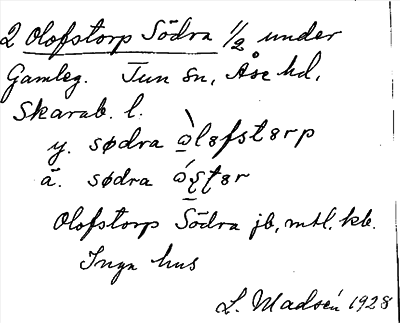 2 Olofstorp Södra 1/2 under
Gamleg. Tun sn, Åse hd,
Skarab. l.
y. sødra òlɵfstɵrp
ä. sødra
Olofstorp Södra jb, mtl. kb.
Inga hus
L. Madsén 1928